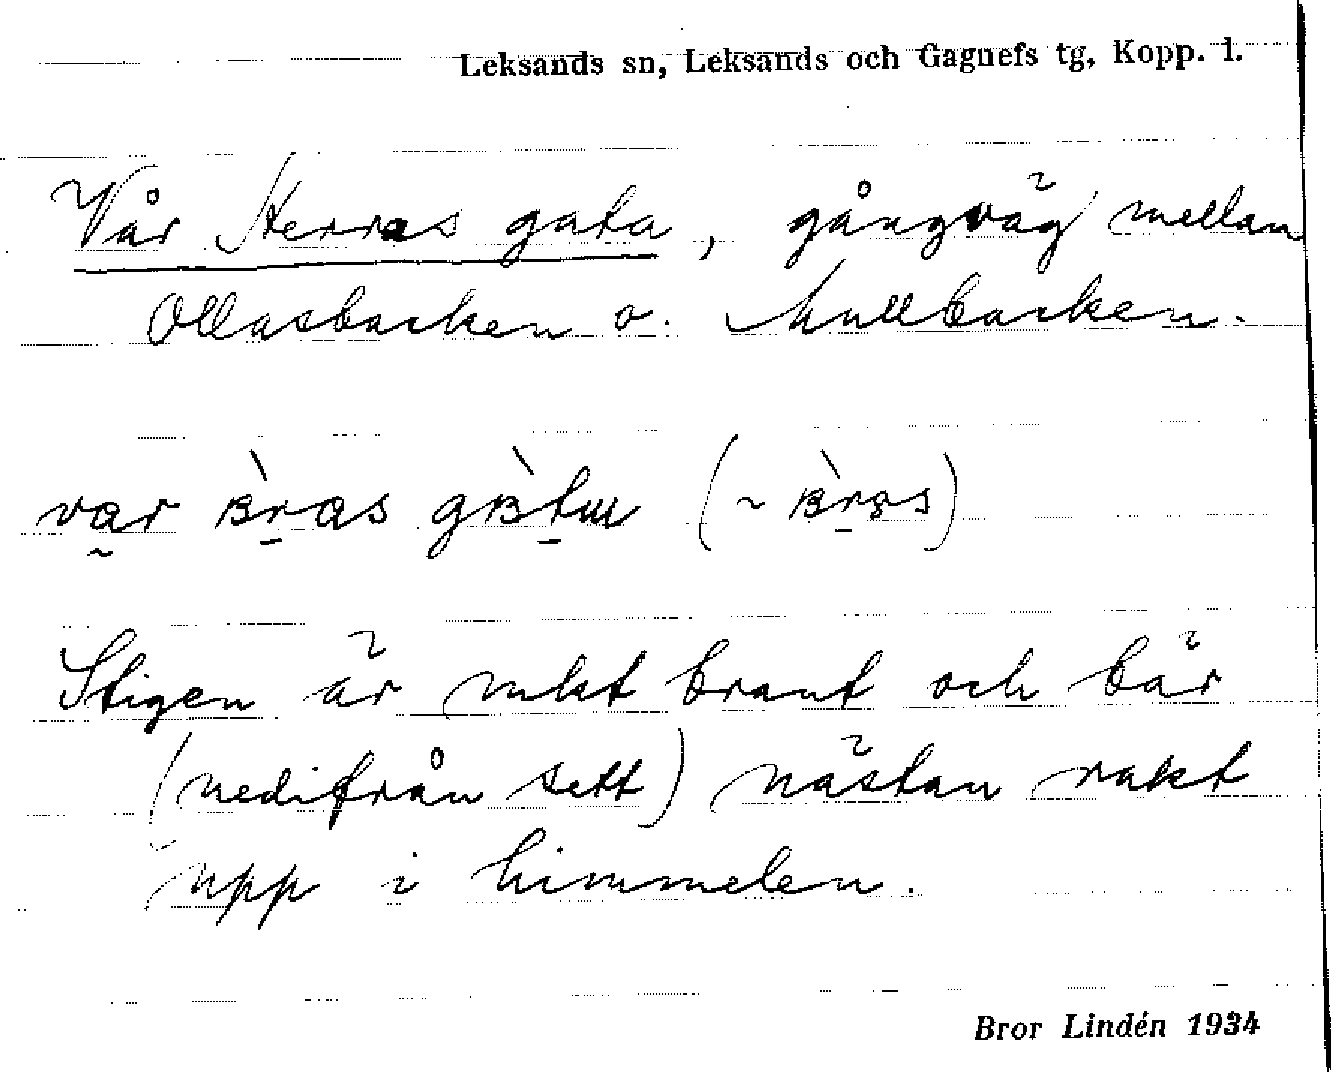 Leksands sn, Leksands och Gagnefs tg, Kopp. l.
Vår Herras gata, gångväg mellan
Ollasbacken o. Mullbacken.
Stigen är mkt brant och bär
(nedifrån sett) nästan rakt
upp i himmelen.
Bror Lindén 1934